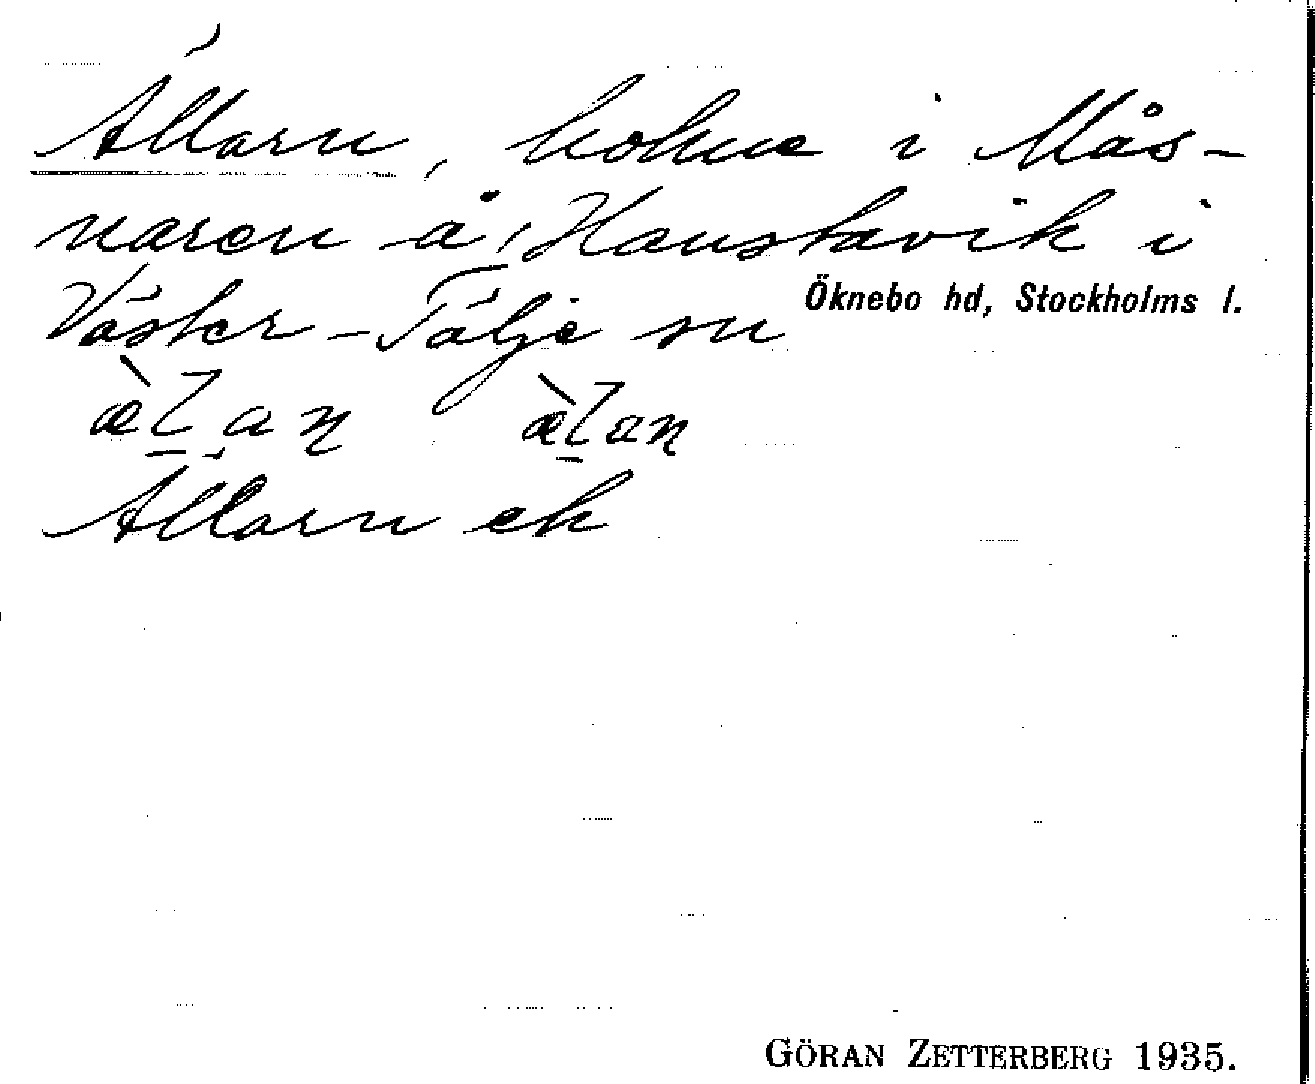 Ällarn, holme i Mås-
naren å Hanstavik i
Väster-Tälje sn Öknebo hd, Stockholms l.
æ̀lan æ̀lan
Ällarn ek
GÖRAN ZETTERBERG 1935.